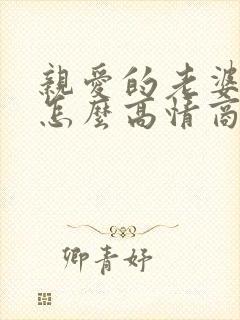 親愛的老婆
怎麼高情商
卿青妤